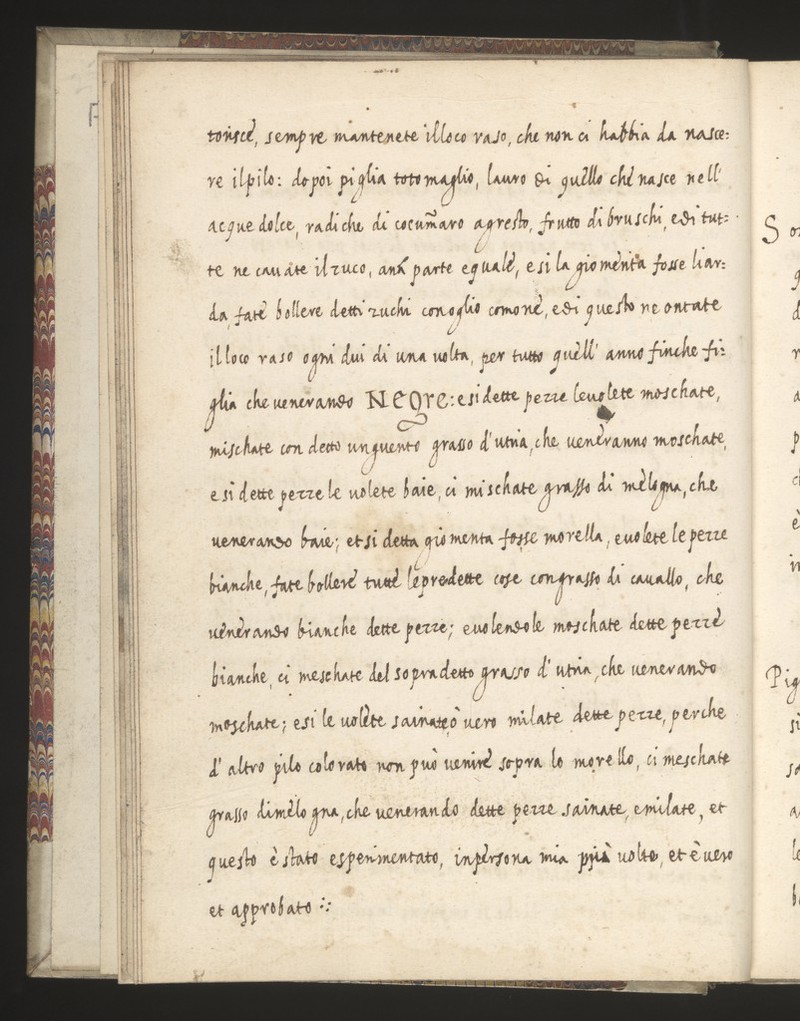 torisce, sempre mantenete illoco raso, che non ci habbia da nasce:
re ilpilo: dopoi piglia totomaglio, lauro di quello che nasce nell'
acque dolce, radiche di cocum̃aro agresto, frutto di bruschi, e di tut:
te ne cauate il zuco, anà parte equale, e si la giomenta fosse liar:
da, fate bollere detti zuchi con oglio comone, e di questo ne ontate
illoco raso ogni dui di una uolta, per tutto quell' anno finche fi:
glia che venerando Negre: e si dette pezze le uolete moschate,
mischate con detto unguento grasso d' utria, che veneranno moschate,
e si dette pezze le uolete baie, ci mischate grasso di melogna, che
venerando baie; et si detta giomenta fosse morella, e uolete le pezze
bianche, fate bollere tutte le predette cose con grasso di cauallo, che
venerando bianche dette pezze; e uolendole moschate dette pezze
bianche, ci meschate del sopradetto grasso d' utria, che venerando
moschate; e si le uolete sainate ò vero milate dette pezze, perche
d' altro pilo colorato non può venire sopra lo morello, ci meschate
grasso di melogna, che venerando dette pezze sainate, e milate, et
questo è stato esperimentato, in persona mia più uolte, et è vero
et approbato
S
Pig